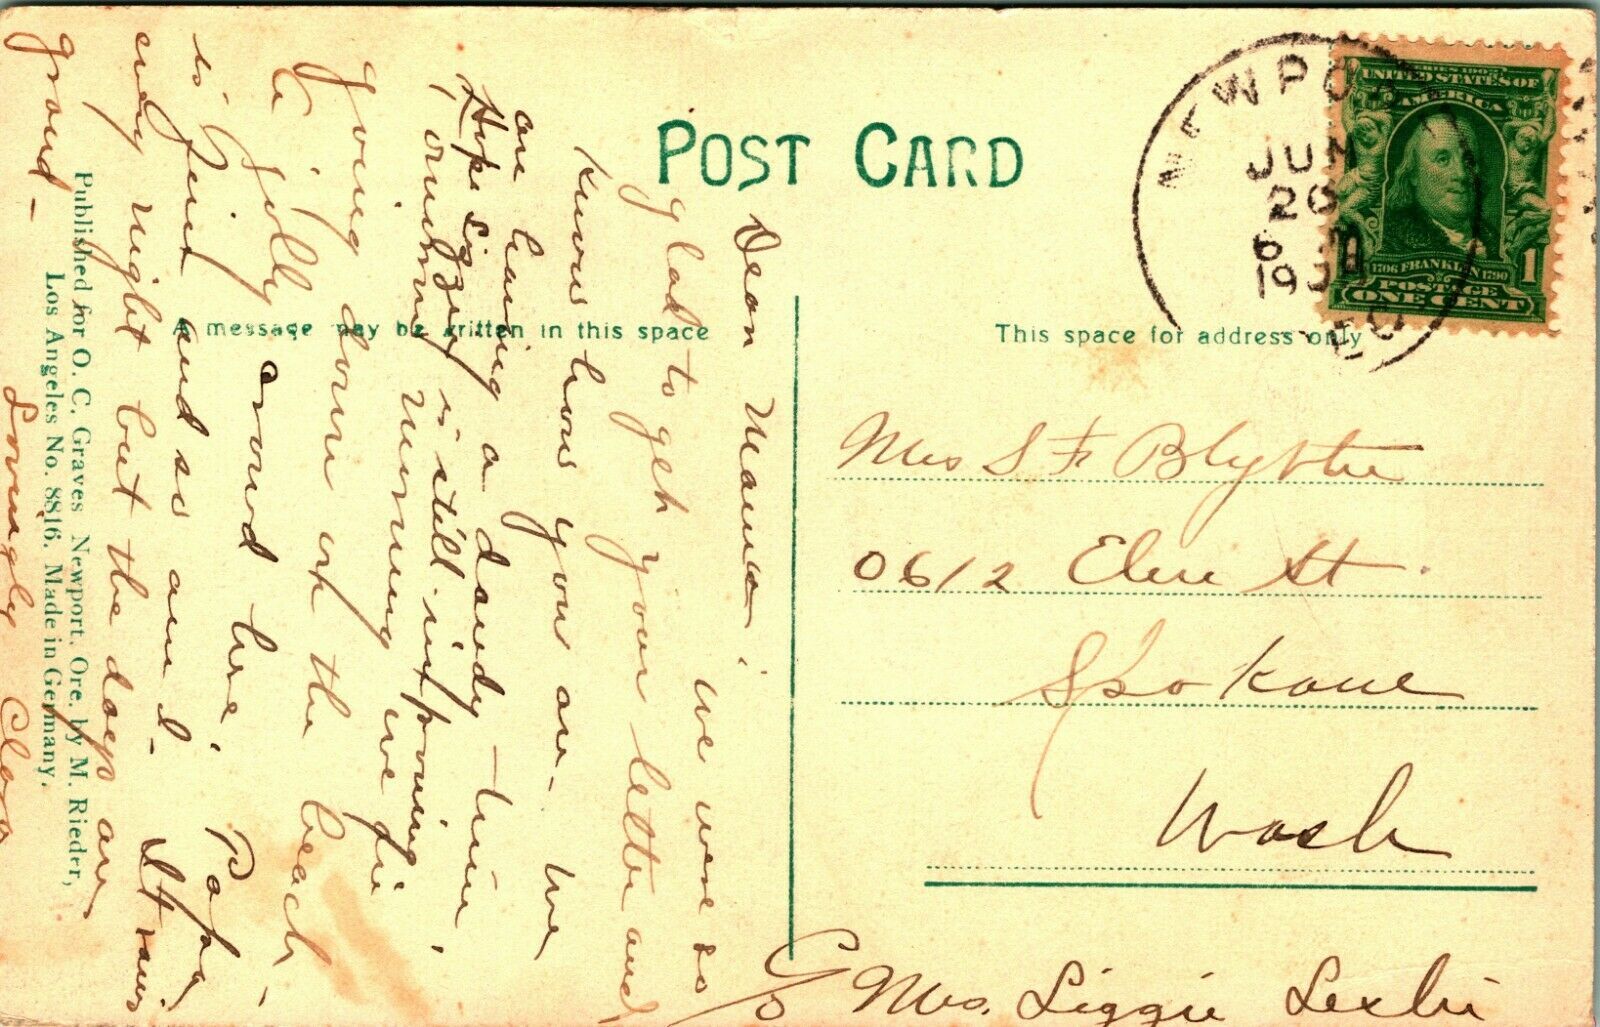 POST CARD
NEWPORT
JUN
20
6
19
SERIES 1902
UNITED STATES OF
AMERICA
1706 FRANKLIN 1790
POSTAGE
ONE CENT
1
A message may be written in this space
This space for address only
Dear Mama. We were so
glad to get your letter and
know how you are. We
are having a dandy time,
Hope Lizzy is still improving.
morning we
going down on the beach.
jolly crowd here. Papa
is fine and so am I. It rains
every night but the days are
grand.
Lovingly Clara
Published for O. C. Graves Newport, Ore. by M. Rieder,
Los Angeles No. 8816. Made in Germany.
Mrs S F Blythe
0612 St
Spokane
Wash
C/o Mrs. Liggie Leslie